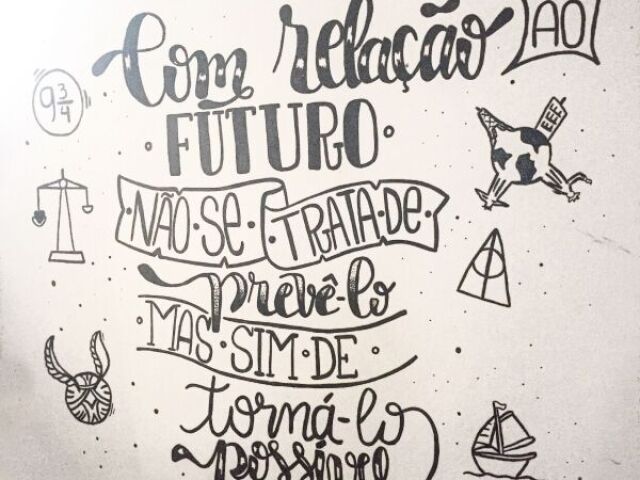 Com relação AO
9 3/4
FUTURO
NÃO·SE·TRATA·DE·
prevê-lo
·MAS·SIM·DE·
torná-lo
possível